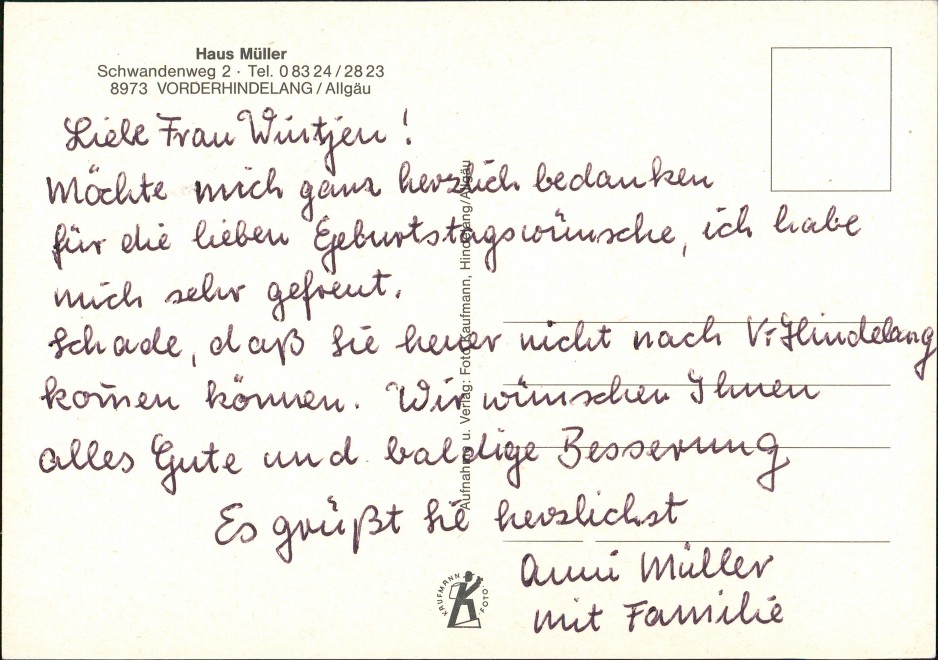 Haus Müller
Schwandenweg 2 · Tel. 0 83 24 / 28 23
8973 VORDERHINDELANG / Allgäu
Liebe Frau Wintjen!
Möchte mich ganz herzlich bedanken
für die lieben Geburtstagswünsche, ich habe
mich sehr gefreut.
Schade, daß Sie heuer nicht nach V. Hindelang
kom̄en können. Wir wünschen Ihnen
alles Gute und baldige Besserung
Es grüßt Sie herzlichst
Anni Müller
mit Familie
Aufnahme u. Verlag: Foto Kaufmann, Hindelang/Allgäu
KAUFMANN FOTO